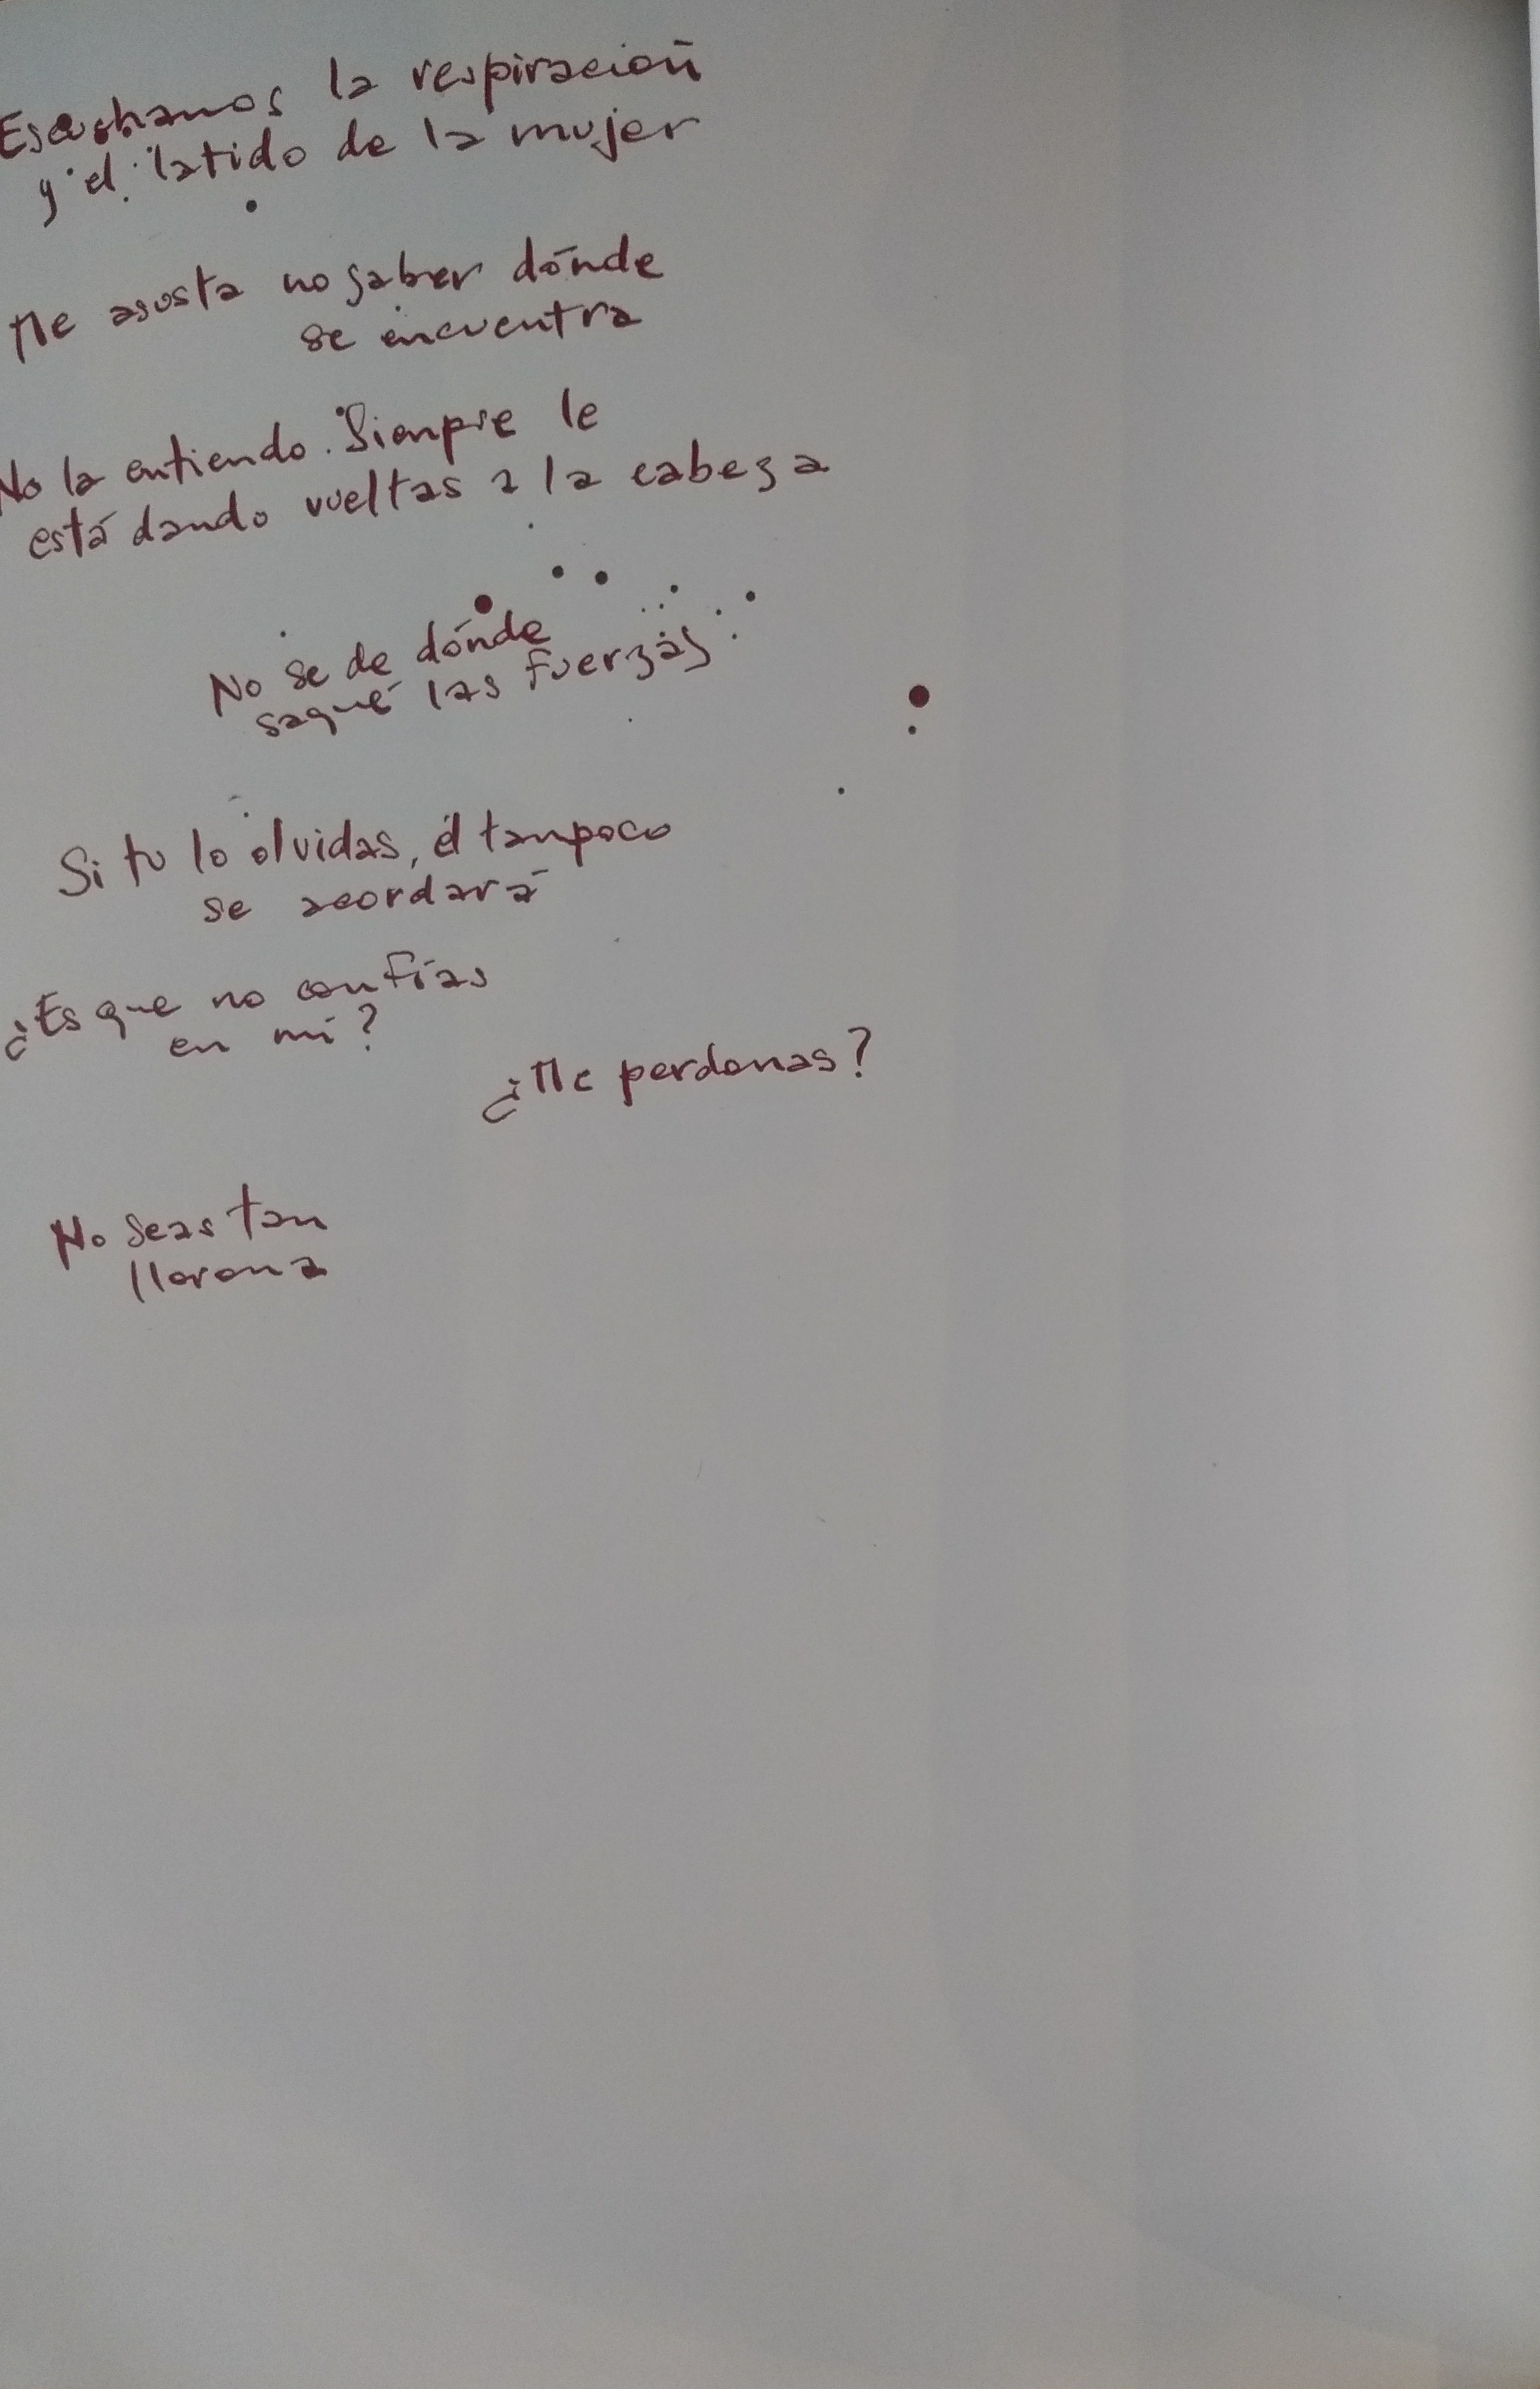 Escuchamos la respiración
y el latido de la mujer
Me asusta no saber dónde
se encuentra
No la entiendo. Siempre le
está dando vueltas a la cabeza
No se de dónde
saqué las fuerzas
Si tu lo olvidas, él tampoco
se acordará
¿Es que no confías
en mí?
¿Me perdonas?
No seas tan
llorona